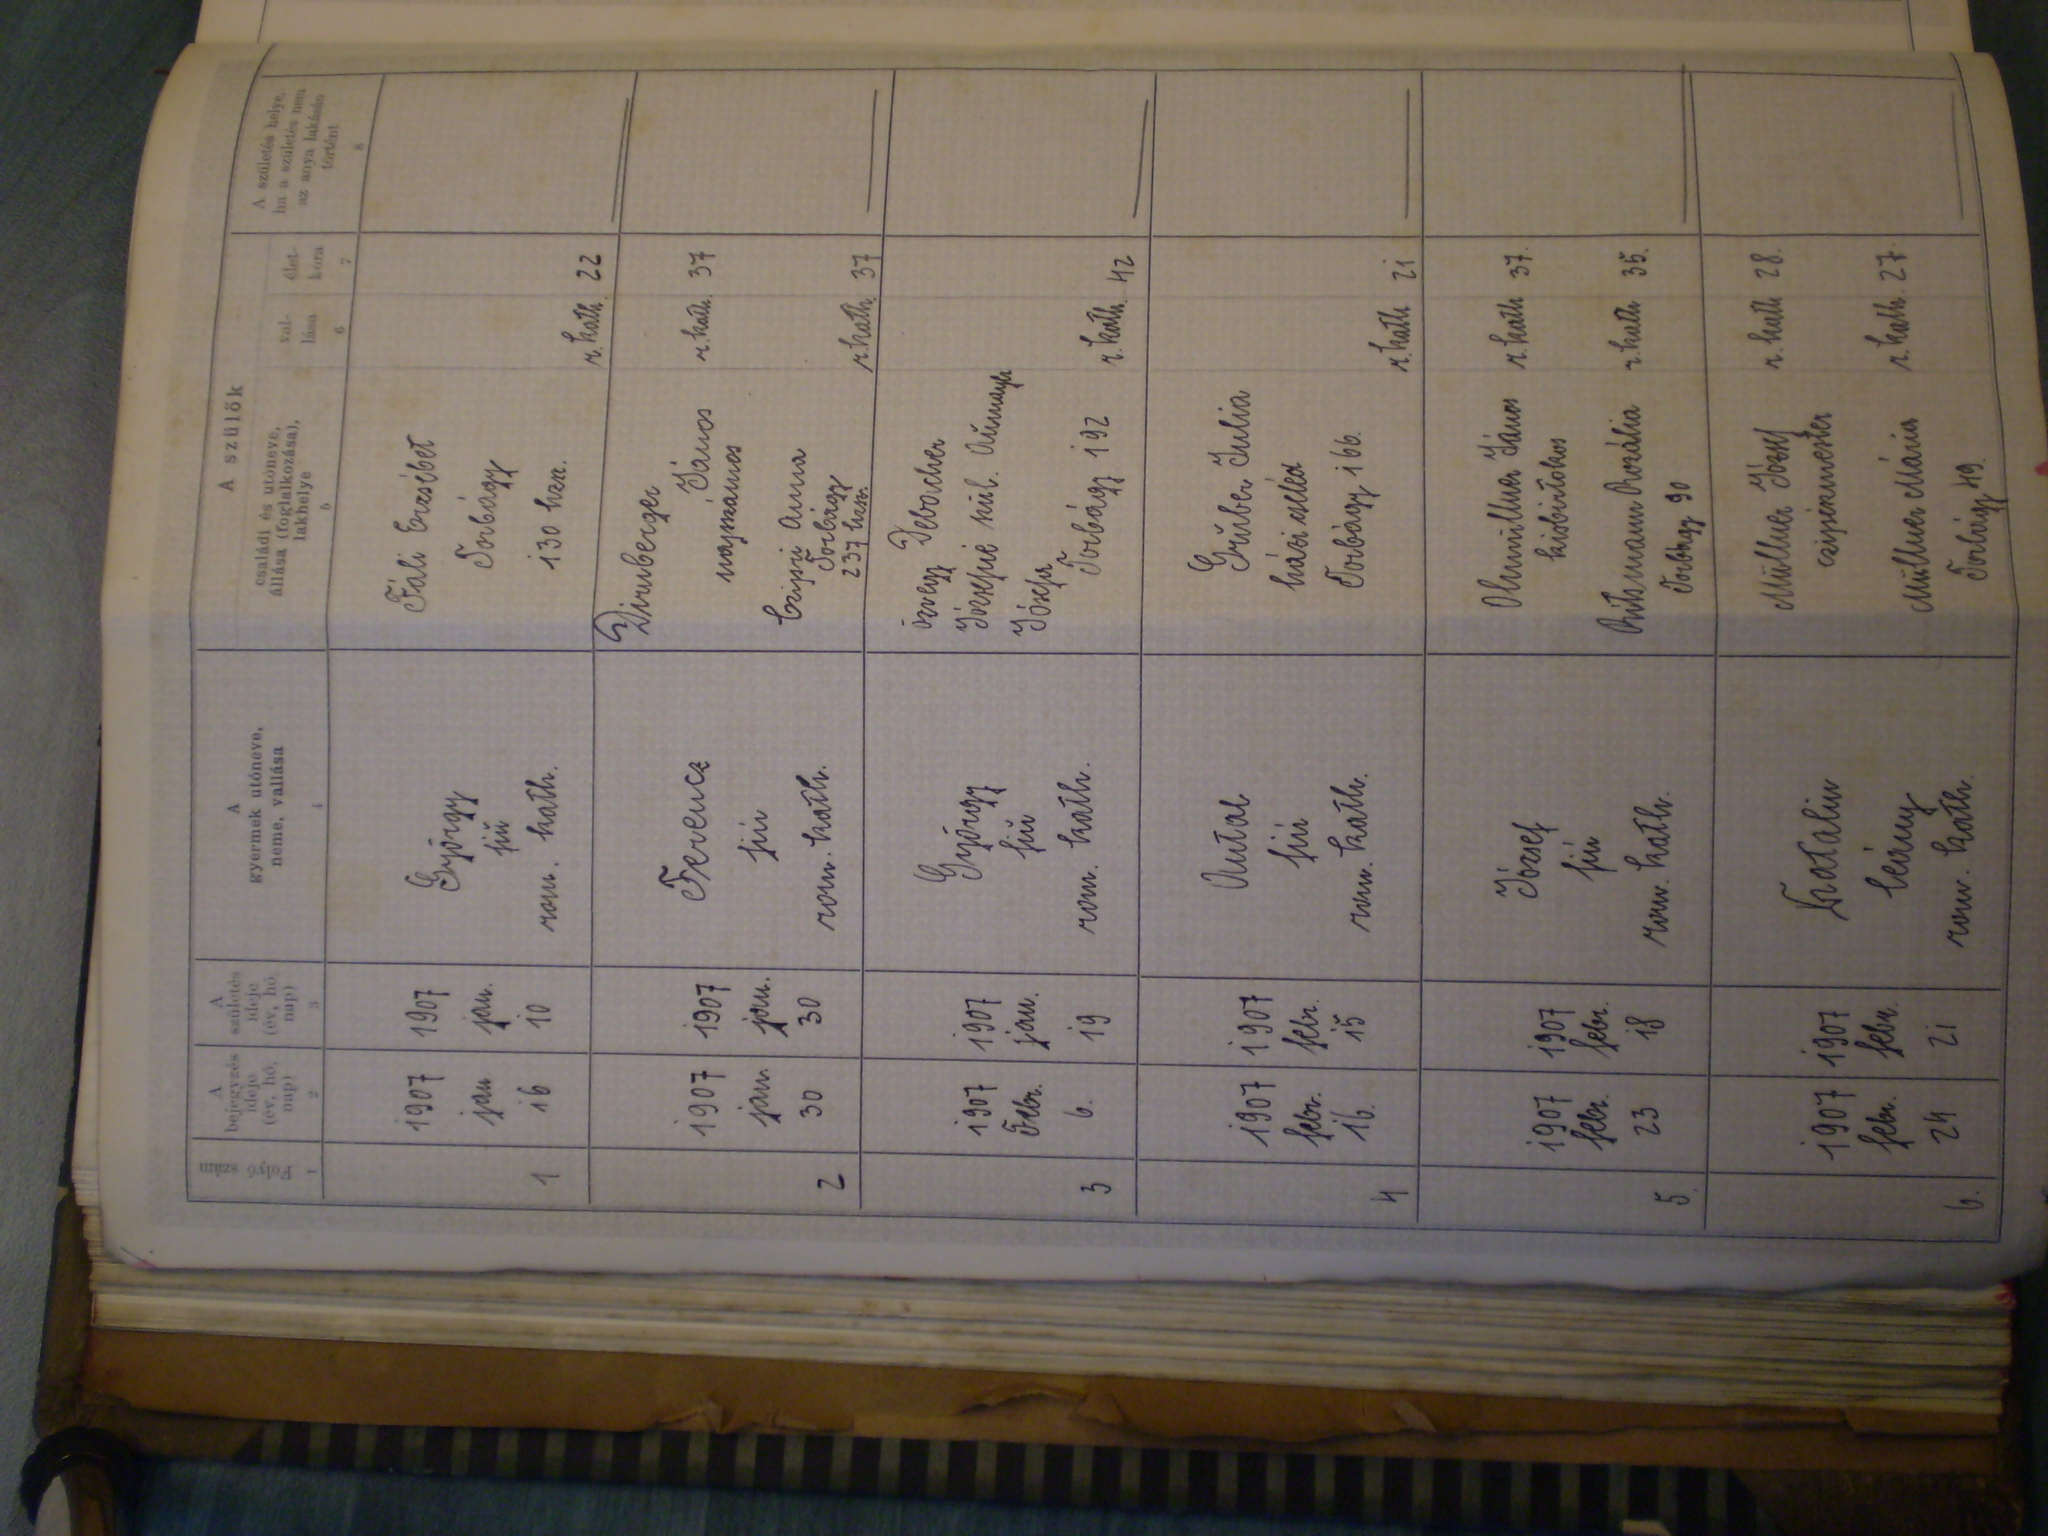 A szülők
Folyó szám
A bejegyzés ideje (év, hó, nap)
A születés ideje (év, hó, nap)
A gyermek utóneve, neme, vallása
családi és utóneve, állása (foglalkozása), lakhelye
vallása
életkora
A születés helye, ha a születés nem az anya lakásán történt
1 2 3 4 5 6 7 8
1
1907 jan. 16
1907 jan. 10
György
fiú
rom. kath.
Fáli Erzsébet
Torbágy
130 hsz.
r. kath. 22
2
1907 jan. 30
1907 jan. 30
Ferencz
fiú
rom. kath.
Dirnberger
János
napszámos
r. kath. 37
Anna
Torbágy
237 hsz.
r. kath. 37
3
1907 Febr. 6.
1907 jan. 19
György
fiú
rom. kath.
özvegy Debacher
Józsefné szül.
Jozefa
Torbágy 192
r. kath. 42
4
1907 febr. 16.
1907 febr. 15
Antal
fiú
rom. kath.
Gruber Julia
házi cseléd
Torbágy 166.
r. kath 21
5.
1907 febr. 23
1907 febr. 18
József
fiú
rom. kath.
János
kisbirtokos
r. kath 37.
Rozália
Torbágy 90
r. kath 35.
6.
1907 febr. 24
1907 febr. 21
Katalin
leány
rom. kath.
Müllner József
czipészmester
r. kath 28.
Müllner Mária
Torbágy 49.
r. kath. 27.